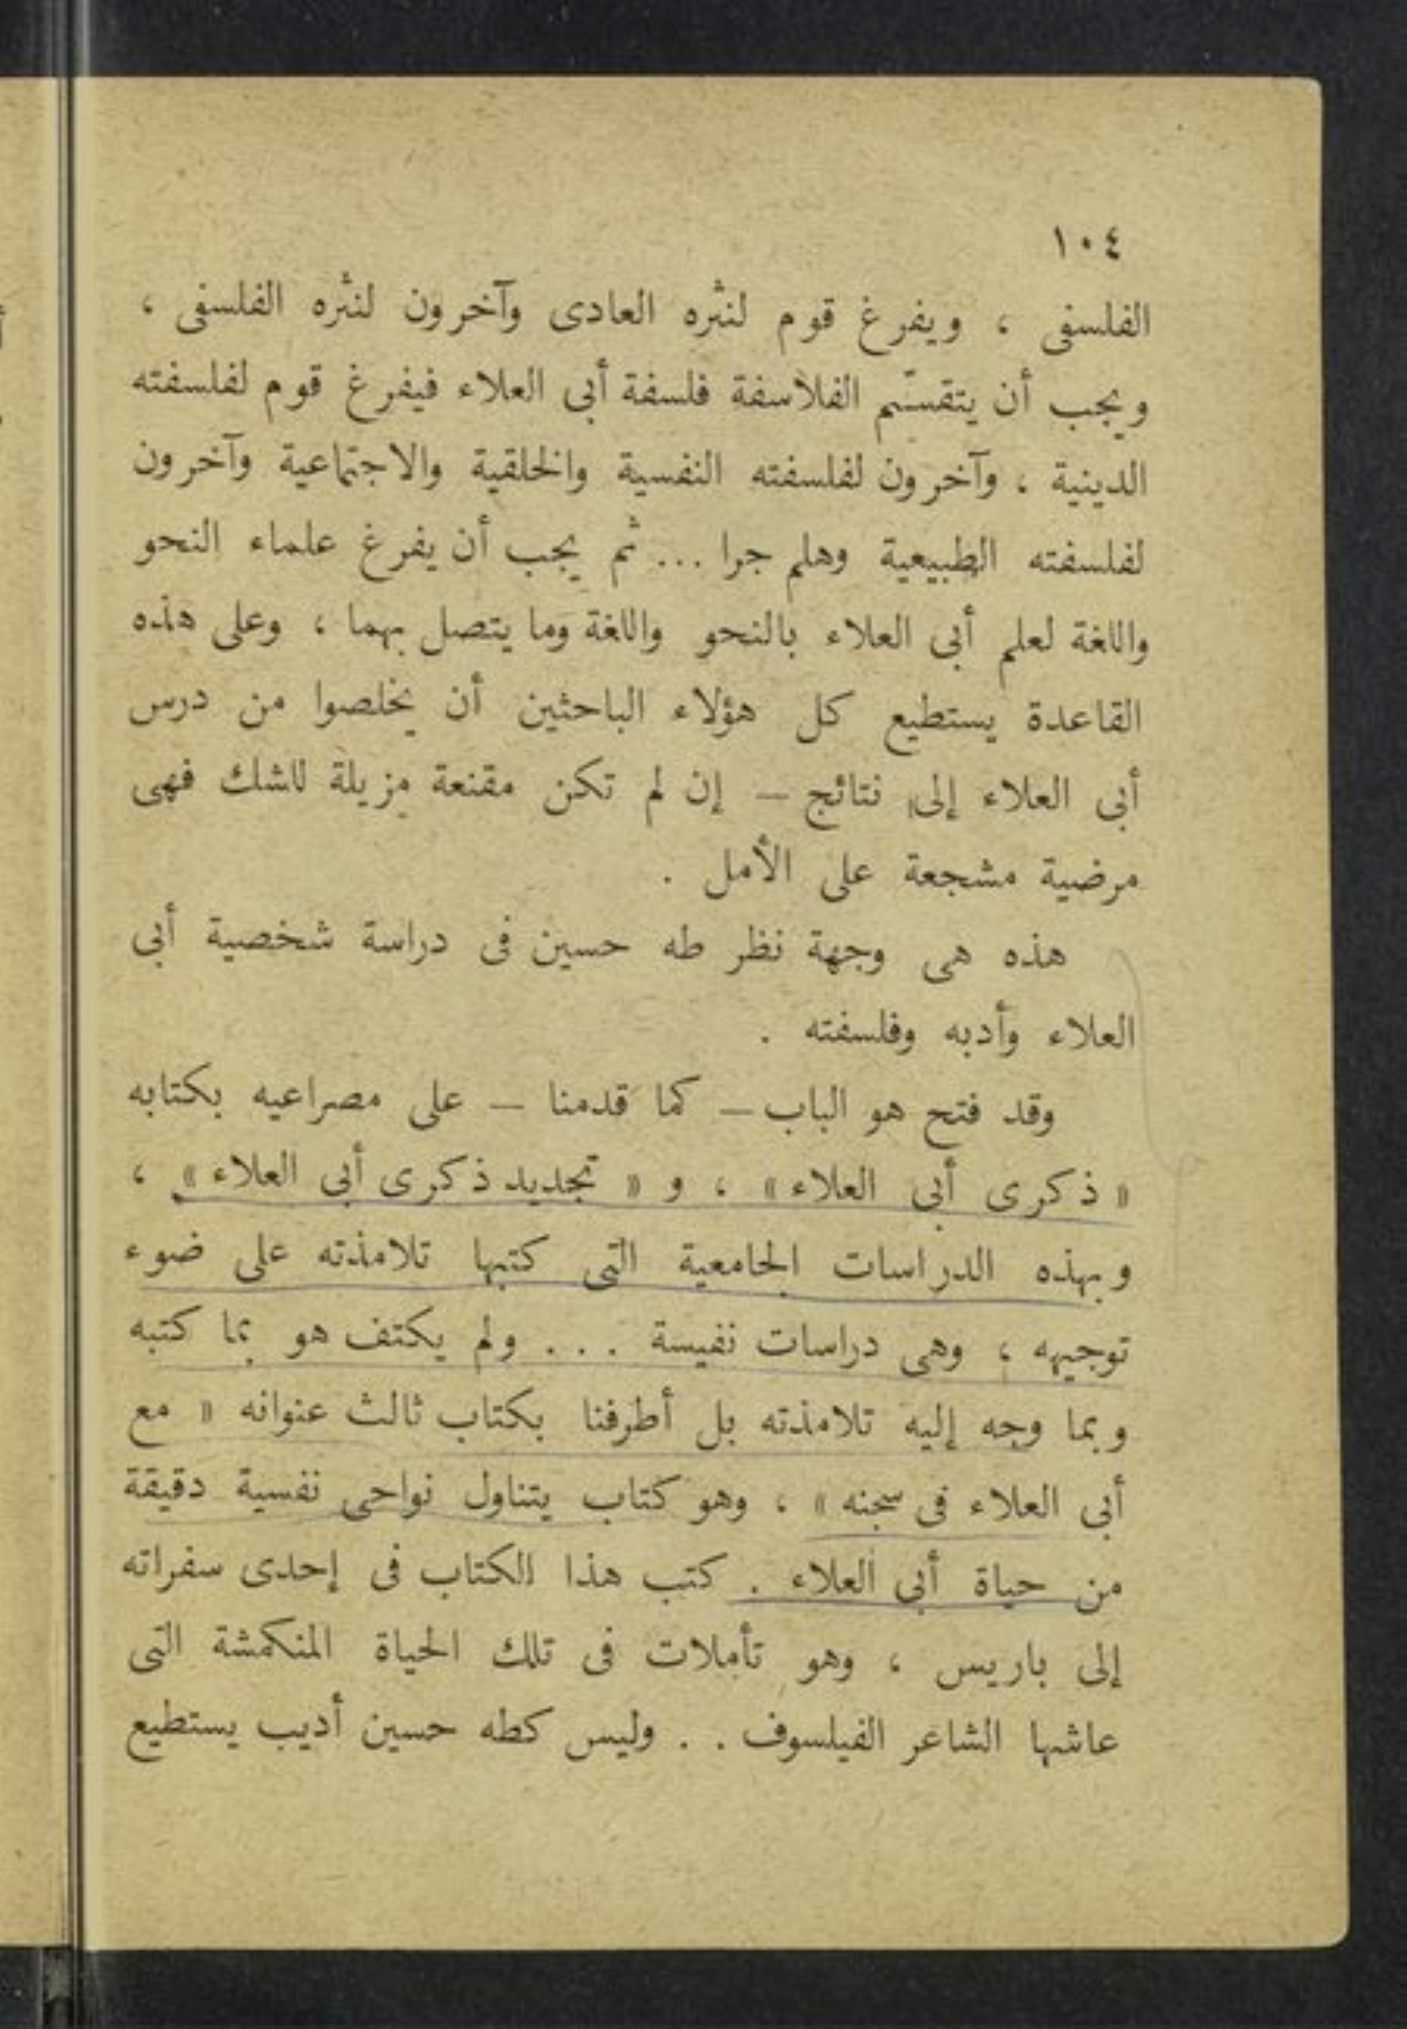 ١٠٤
الفلسفى ، ويفرغ قوم لنثره العادى وآخرون لنثره الفلسفى ،
ويجب أن يتقسّم الفلاسفة فلسفة أبى العلاء فيفرغ قوم لفلسفته
الدينية ، وآخرون لفلسفته النفسية والخلقية والاجتماعية وآخرون
لفلسفته الطبيعية وهلم جرا ... ثم يجب أن يفرغ علماء النحو
واللغة لعلم أبى العلاء بالنحو واللغة وما يتصل بهما ، وعلى هذه
القاعدة يستطيع كل هؤلاء الباحثين أن يخلصوا من درس
أبى العلاء إلى نتائج – إن لم تكن مقنعة مزيلة للشك فهى
مرضية مشجعة على الأمل .
هذه هى وجهة نظر طه حسين فى دراسة شخصية أبى
العلاء وأدبه وفلسفته .
وقد فتح هو الباب – كما قدمنا – على مصراعيه بكتابه
« ذكرى أبى العلاء » ، و « تجديد ذكرى أبى العلاء » ،
وبهذه الدراسات الجامعية التى كتبها تلامذته على ضوء
توجيهه ، وهى دراسات نفيسة . . . ولم يكتف هو بما كتبه
وبما وجه إليه تلامذته بل أطرفنا بكتاب ثالث عنوانه « مع
أبى العلاء فى سجنه » ، وهو كتاب يتناول نواحى نفسية دقيقة
من حياة أبى العلاء . كتب هذا الكتاب فى إحدى سفراته
إلى باريس ، وهو تأملات فى تلك الحياة المنكمشة التى
عاشها الشاعر الفيلسوف . . وليس كطه حسين أديب يستطيع